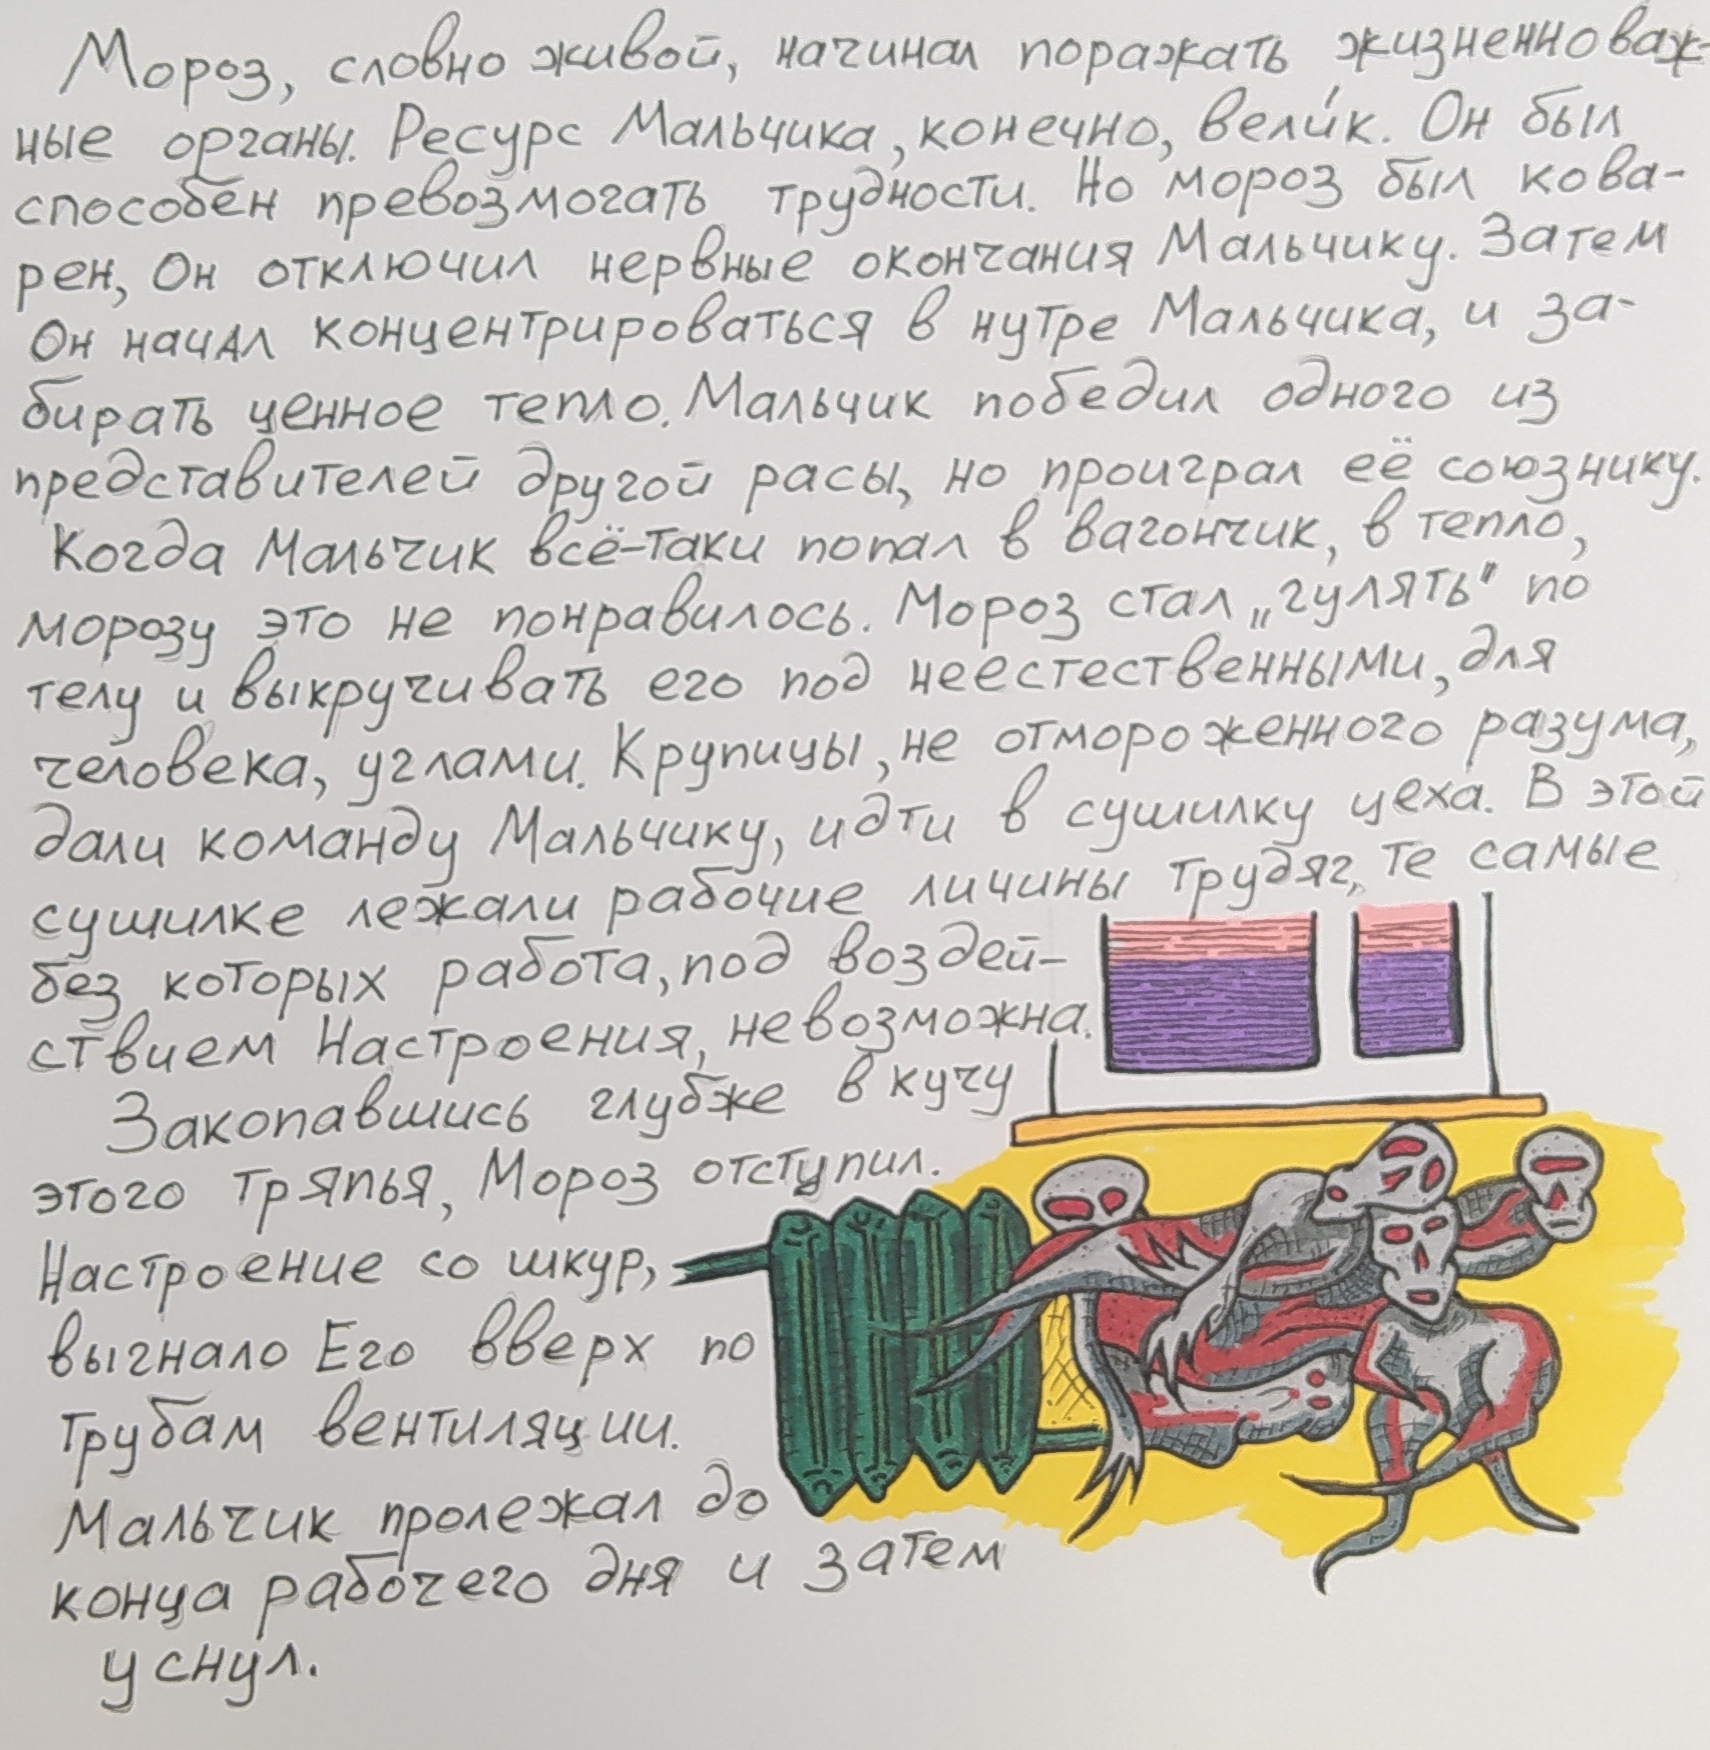 Мороз, словно живой, начинал поражать жизненноваж-
ные органы. Ресурс Мальчика, конечно, вели́к. Он был
способен превозмогать трудности. Но мороз был кова-
рен, Он отключил нервные окончания Мальчику. Затем
Он начал концентрироваться в нутре Мальчика, и за-
бирать ценное тепло. Мальчик победил одного из
представителей другой расы, но проиграл её союзнику.
Когда Мальчик всё-таки попал в вагончик, в тепло,
морозу это не понравилось. Мороз стал „гулять" по
телу и выкручивать его под неестественными, для
человека, углами. Крупицы, не отмороженного разума,
дали команду Мальчику, идти в сушилку цеха. В этой
сушилке лежали рабочие личины трудяг, те самые
без которых работа, под воздей-
ствием Настроения, невозможна.
Закопавшись глубже в кучу
этого тряпья, Мороз отступил.
Настроение со шкур,
выгнало Его вверх по
трубам вентиляции.
Мальчик пролежал до
конца рабочего дня и затем
уснул.